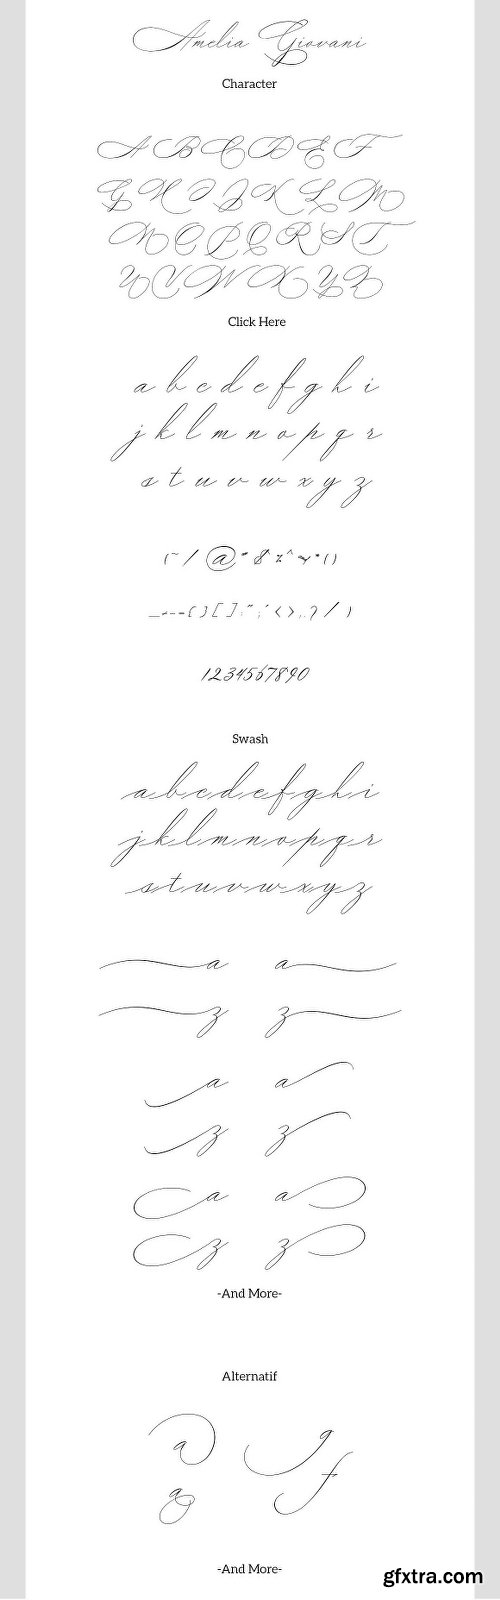 Amelia Giovani
Character
A B C D E F
G H I J K L M
N O P Q R S T
U V W X Y Z
Click Here
a b c d e f g h i
j k l m n o p q r
s t u v w x y z
1234567890
Swash
a b c d e f g h i
j k l m n o p q r
s t u v w x y z
a a
z z
a a
z z
a a
z z
-And More-
Alternatif
a g
a f
-And More-
gfxtra.com